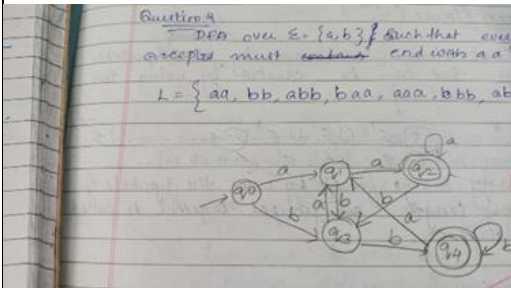 Question 9
DFA over Σ = {a, b} such that eve
accepted must end with aa
L = { aa, bb, abb, baa, aaa, bbb, ab
a
a
a
q1
q2
q0
b
a
b
b
a
b
q3
b
q4
b